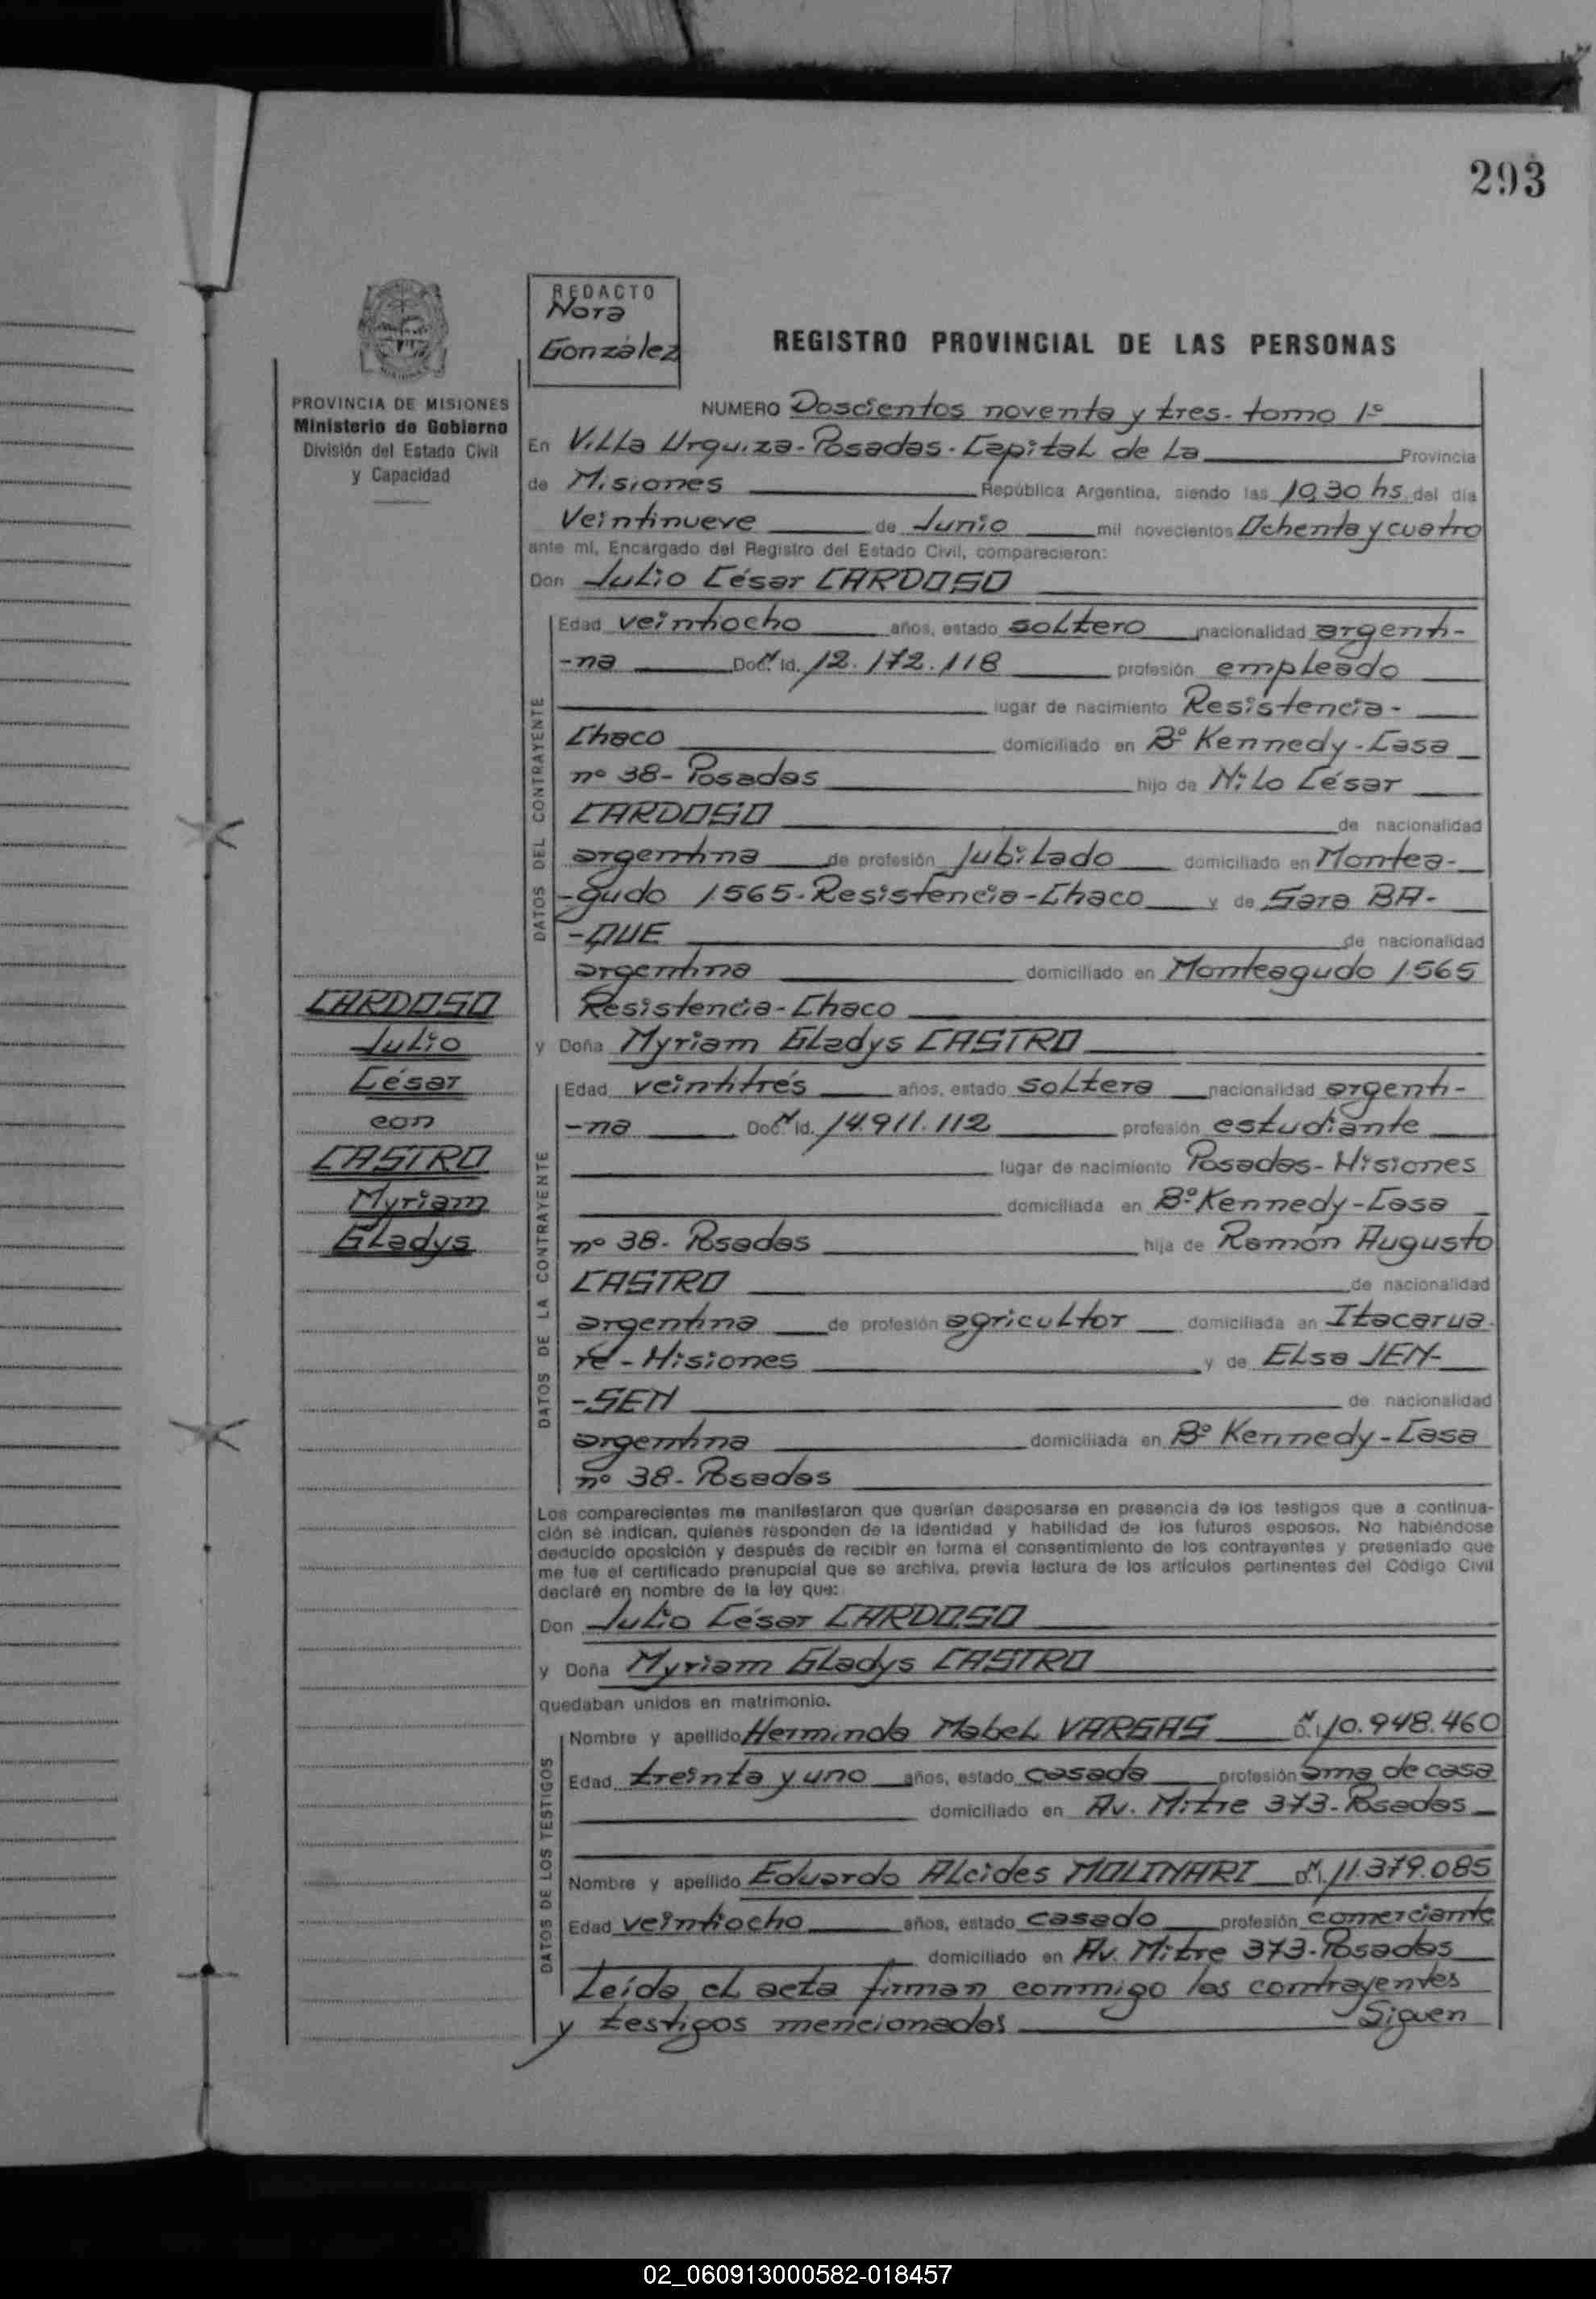 293
REDACTO
Nora
González
REGISTRO PROVINCIAL DE LAS PERSONAS
PROVINCIA DE MISIONES
Ministerio de Gobierno
División del Estado Civil
y Capacidad
NUMERO Doscientos noventa y tres - tomo 1º
En Villa Urquiza - Posadas - Capital de La Provincia
de Misiones República Argentina, siendo las 10,30 hs. del día
Veintinueve de Junio mil novecientos Ochenta y cuatro
ante mí, Encargado del Registro del Estado Civil, comparecieron:
Don Julio César CARDOSO
DATOS DEL CONTRAYENTE
Edad veintiocho años, estado soltero nacionalidad argenti-
-na Doc. Id. 12.172.118 profesión empleado
lugar de nacimiento Resistencia -
Chaco domiciliado en Bº Kennedy - Casa
nº 38 - Posadas hijo de Nilo César
CARDOSO de nacionalidad
argentina de profesión Jubilado domiciliado en Montea-
-gudo 1565 - Resistencia - Chaco y de Sara BA-
-QUE de nacionalidad
argentina domiciliado en Monteagudo 1565
Resistencia - Chaco
CARDOSO
Julio
César
con
CASTRO
Myriam
Gladys
y Doña Myriam Gladys CASTRO
DATOS DE LA CONTRAYENTE
Edad veintitrés años, estado soltera nacionalidad argenti-
-na Doc. Id. 14.911.112 profesión estudiante
lugar de nacimiento Posadas - Misiones
domiciliada en Bº Kennedy - Casa
nº 38 - Posadas hija de Ramón Augusto
CASTRO de nacionalidad
argentina de profesión agricultor domiciliada en Itacarua-
ré - Misiones y de Elsa JEN-
-SEN de nacionalidad
argentina domiciliada en Bº Kennedy - Casa
nº 38 - Posadas
Los comparecientes me manifestaron que querían desposarse en presencia de los testigos que a continua-
ción se indican, quienes responden de la identidad y habilidad de los futuros esposos. No habiéndose
deducido oposición y después de recibir en forma el consentimiento de los contrayentes y presentado que
me fue el certificado prenupcial que se archiva, previa lectura de los artículos pertinentes del Código Civil
declaré en nombre de la ley que:
Don Julio César CARDOSO
y Doña Myriam Gladys CASTRO
quedaban unidos en matrimonio.
DATOS DE LOS TESTIGOS
Nombre y apellido Herminda Mabel VARGAS D.N.I. 10.948.460
Edad treinta y uno años, estado casada profesión ama de casa
domiciliado en Av. Mitre 373 - Posadas
Nombre y apellido Eduardo Alcides MOLINARI D.N.I. 11.379.085
Edad veintiocho años, estado casado profesión comerciante
domiciliado en Av. Mitre 373 - Posadas
Leída el acta firman conmigo los contrayentes
y testigos mencionados Siguen
02_060913000582-018457